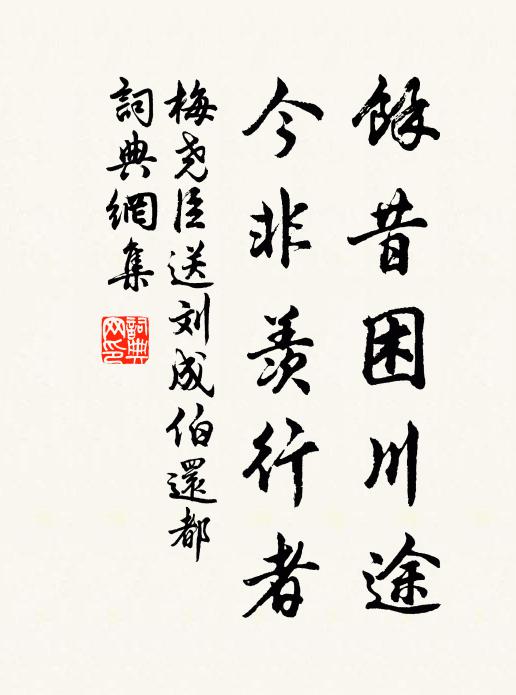 餘昔困川途
今非羨行者
梅尧臣送刘成伯還都
詞典網集
詞典网印